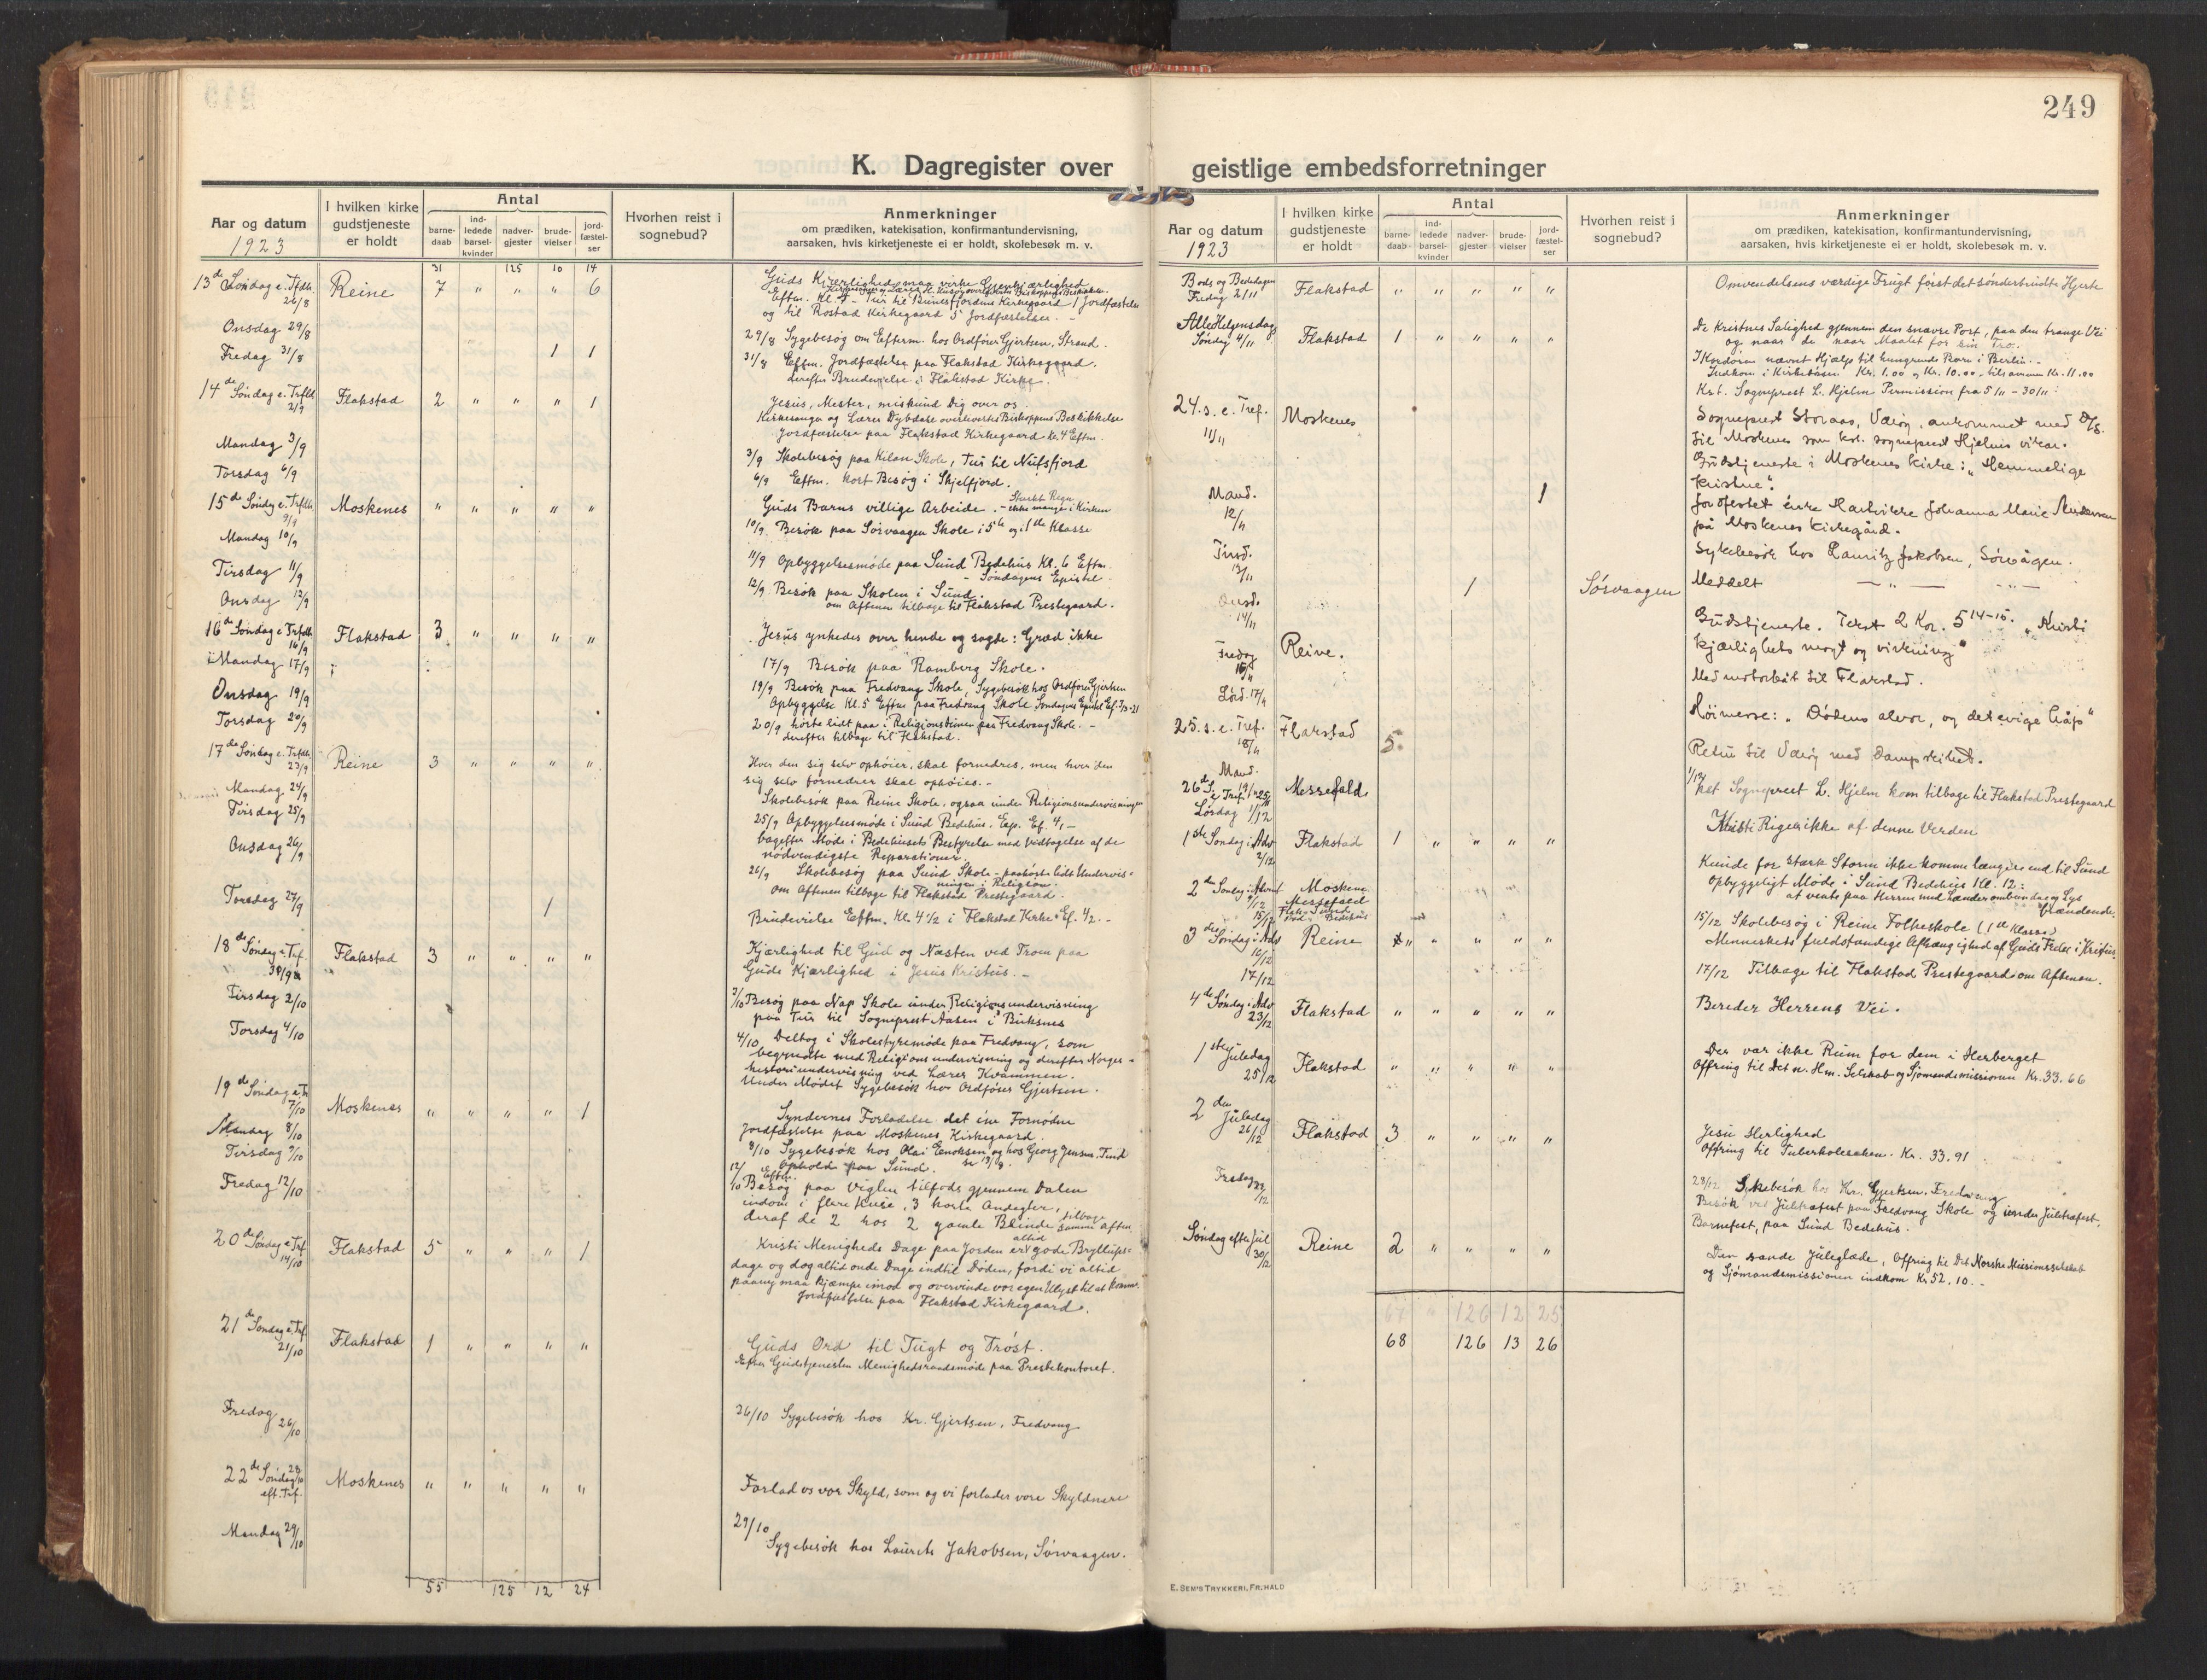 249
K. Dagregister over geistlige embedsforretninger
Aar og datum
1923
I hvilken kirke gudstjeneste er holdt
Antal
barne-daab
ind-ledede barsel-kvinder
nadver-gjester
brude-vielser
jord-fæstel-ser
Hvorhen reist i sognebud?
Anmerkninger
om prædiken, katekisation, konfirmantundervisning,
aarsaken, hvis kirketjeneste ei er holdt, skolebesøk m. v.
31 125 10 14
13de Søndag e. Trfdh. 26/8 Reine 7 " " " 6
Guds Kjærlighed maa virke Gjenkjærlighed
Eftm. Kl. 4 - Tur til Bunesfjordens Kirkegaard 1 Jordfæstelse
og til Rostad Kirkegaard 5 Jordfæstelser. -
Onsdag 29/8
29/8 Sygebesøg om Efterm. hos Ordfører Gjertsen, Strand.
Fredag 31/8 1 1
31/8 Eftm. Jordfæstelse paa Flakstad Kirkegaard.
derefter Brudevielse i Flakstad Kirke.
14de Søndag e. Trfdh 2/9 Flakstad 2 " " " 1
Jesus, Mester, miskund Dig over os.
Kirkesanger og Lærer Dybdahl overleverte Biskoppens Beskikkelse
Jordfæstelse paa Flakstad Kirkegaard Kl. 4 Eftm.
Mandag 3/9
3/9 Skolebesøg paa Kilan Skole, Tur til Nusfjord
Torsdag 6/9
6/9 Eftm. kort Besøg i Skjelfjord.
15de Søndg e. Trfdh 9/9 Moskenes " " " " "
Guds Barns villige Arbeide. - Stærkt Regn ikke mange i Kirken
Mandag 10/9
10/9 Besøk paa Sørvaagen Skole i 5te og i 1ste Klasse
Tirsdag 11/9
11/9 Opbyggelsesmøde paa Sund Bedehus Kl. 6 Eftm.
- Søndagens Epistel -
Onsdag 12/9
12/9 Besøk paa Skolen i Sund.
om Aftenen tilbage til Flakstad Prestegaard.
16de Søndag e Trfdh 16/9 Flakstad 3 " " " "
Jesus ynkedes over hende og sagde: Græd ikke
Mandag 17/9
17/9 Besøk paa Ramberg Skole.
Onsdag 19/9
19/9 Besøk paa Fredvang Skole, Sygebesøk hos Ordfører Gjertsen
Opbyggelse Kl. 5 Eftm paa Fredvang Skole Søndagens Epistel Ef. 3 13-21
Torsdag 20/9
20/9 hørte lidt paa i Religionstimen paa Fredvang Skole. -
derefter tilbage til Flakstad.
17de Søndag e. Trfdh. 23/9 Reine 3 " " " "
Hver den sig selv ophøier, skal fornedres, men hver den
sig selv fornedrer skal ophøies. -
Mandag 24/9
Skolebesøk paa Reine Skole, ogsaa under Religionsundervisningen
Tirsdag 25/9
25/9 Opbyggelsesmøde i Sund Bedehus. Exp. Ef. 4, -
bagefter Møde i Bedehusets Bestyrelse med Vedtagelse af de
nødvendigste Reparationer.
Onsdag 26/9
26/9 Skolebesøg paa Sund Skole - paahørte lidt Undervis-
ningen i Religion.
om Aftenen tilbage til Flakstad Prestegaard.
Torsdag 27/9 1
Brudevielse Eftm. Kl. 4 1/2 i Flakstad Kirke. Ef. 4/2. -
18de Søndag e. Trf. 30/9 Flakstad 3 " " " "
Kjærlighed til Gud og Næsten ved Troen paa
Guds Kjærlighed i Jesus Kristus. -
Tirsdag 2/10
2/10 Besøg paa Nap Skole under Religionsundervisning
paa Tur til Sogneprest Aasen i Buksnes
Torsdag 4/10
4/10 Deltog i Skolestyremøde paa Fredvang, som
begyndte med Religionsundervisning og derefter Norges-
historieundervisning ved Lærer Kvammen.
Under Mødet Sygebesøk hos Ordfører Gjertsen.
19de Søndag e. Tr 7/10 Moskenes " " " " 1
Syndernes Forladelse det ene Fornødne
Jordfæstelse paa Moskenes Kirkegaard.
Mandag 8/10
8/10 Sygebesøk hos Olai Enoksen og hos Georg Jensen, Tind
Tirsdag 9/10
Ophold paa Sund.
Fredag 12/10
12/10 Eftm. Besøg paa Viglen tilfods gjennem Dalen
indom i flere Huse, 3 korte Andagter,
deraf de 2 hos 2 gamle Blinde tilbage samme Aften.
20de Søndag e Trf 14/10 Flakstad 5 " " " 1
Kristi Menigheds Dage paa Jorden er altid gode Bryllups-
dage og dog altid onde Dage indtil Døden, fordi vi altid
paany maa kjæmpe imod og overvinde vor egen Ulyst til at komme.
Jordfæstelse paa Flakstad Kirkegaard.
21de Søndag e. Trf 21/10 Flakstad 1 " " " "
Guds Ord til Tugt og Trøst.
Efter Gudstjenesten Menighedsraadsmøde paa Prestekontoret.
Fredag 26/10
26/10 Sygebesøk hos Kr. Gjertsen, Fredvang
22de Søndag 28/10 eft. Trf. Moskenes " " " " "
Forlad os vor Skyld, som og vi forlader vore Skyldnere
Mandag 29/10
29/10
Sygebesøk hos Laurits Jakobsen, Sørvaagen.
55 125 12 24
Aar og datum
1923
I hvilken kirke gudstjeneste er holdt
Antal
barne-daab
ind-ledede barsel-kvinder
nadver-gjester
brude-vielser
jord-fæstel-ser
Hvorhen reist i sognebud?
Anmerkninger
om prædiken, katekisation, konfirmantundervisning,
aarsaken, hvis kirketjeneste ei er holdt, skolebesøk m. v.
Bods og Bededagen Fredag 2/11 Flakstad " " " " "
Omvendelsens værdige Frugt først det sønderbrudte Hjerte
AlleHelgensdag Søndag 4/11 Flakstad 1 " " " "
De Kristnes Salighed gjennem den snævre Port, paa den trange Vei
og naar de naar Maalet for sin Tro.
I Kordøren nævnt Hjælp til hungrende Børn i Berlin. -
Indkom i Kirkebøsen Kr. 1.00 og Kr. 10.00, tilsammen Kr. 11.00
Kst. Sogneprest L. Hjelm Permission fra 5/11 - 30/11.
24. s. e. Tref. 11/11 Moskenes
Sogneprest Storaas, Værøy, ankommet med D/S.
til Moskenes som kst. sogneprest Hjelms vikar.
Gudstjeneste i Moskenes kirke: "Hemmelige
kristne".
Mand. 12/11 1
Jordfestet enke Johanna Marie
på Moskenes kirkegård.
Tirsd. 13/11
Sykebesøk hos Lauritz Jakobsen, Sørvågen.
Onsd. 14/11 1 Sørvaagen
Meddelt — " — — " —
Fredag 16/11 Reine.
Gudstjeneste. Text 2 Kor. 5 14-15. "Kristi
kjærlighets magt og virkning"
Lørd. 17/11
Med motorbåt til Flakstad.
25. s. e. Tref. 18/11 Flakstad 5.
Høimesse: "Dødens alvor, og det evige håp"
Mand. 19/11
Retur til Værøy med dampskibet.
26de S. e Tref. 25/11 Messefald
Lørdag 1/12
1/12 kst Sogneprest L. Hjelm kom tilbage til Flakstad Prestegaard
1ste Søndag i Adv 2/12 Flakstad 1 " " " "
Kristi Rige er ikke af denne Verden
2den Søndag i Advent 9/12 Moskenes Messefald
Kunde for stærk Storm ikke komme længere end til Sund
Opbyggeligt Møde i Sund Bedehus Kl. 12:
at vente paa Herren med Lænder ombundne og Lys
brændende.
15/12
15/12 Skolebesøg i Reine Folkeskole (1ste Klasse)
3de Søndag i Adv 16/12 Reine " " " " "
Menneskets fuldstændige Afhængighed af Guds Fred i Kristus.
17/12
17/12 Tilbage til Flakstad Prestegaard om Aftenen.
4de Søndag i Adv 23/12 Flakstad " " " " "
Bereder Herrens Vei.
1ste Juledag 25/12 Flakstad " " " " "
Der var ikke Rum for dem i Herberget
Offring til Det n. Hm. Selskab og Sjømandsmissionen Kr. 33.66
2den Juledag 26/12 Flakstad 3 " " " "
Jesu Herlighed
Offring til Tuberkulosesaken. Kr. 33.91
Fredag 28/12
28/12 Sykebesøk hos Kr. Gjertsen. Fredvang
Besøk ved Juletræfest paa Fredvang Skole og under Juletræfest,
Barnefest, paa Sund Bedehus.
Søndag efter Jul 30/12 Reine 2 " " " "
Den sande Juleglæde, Offring til Det Norske Missionsselskab
og Sjømandsmissionen indkom Kr 52.10. -
67 " 126 12 25
68 126 13 26
E. SEM'S TRYKKERI, FR.HALD